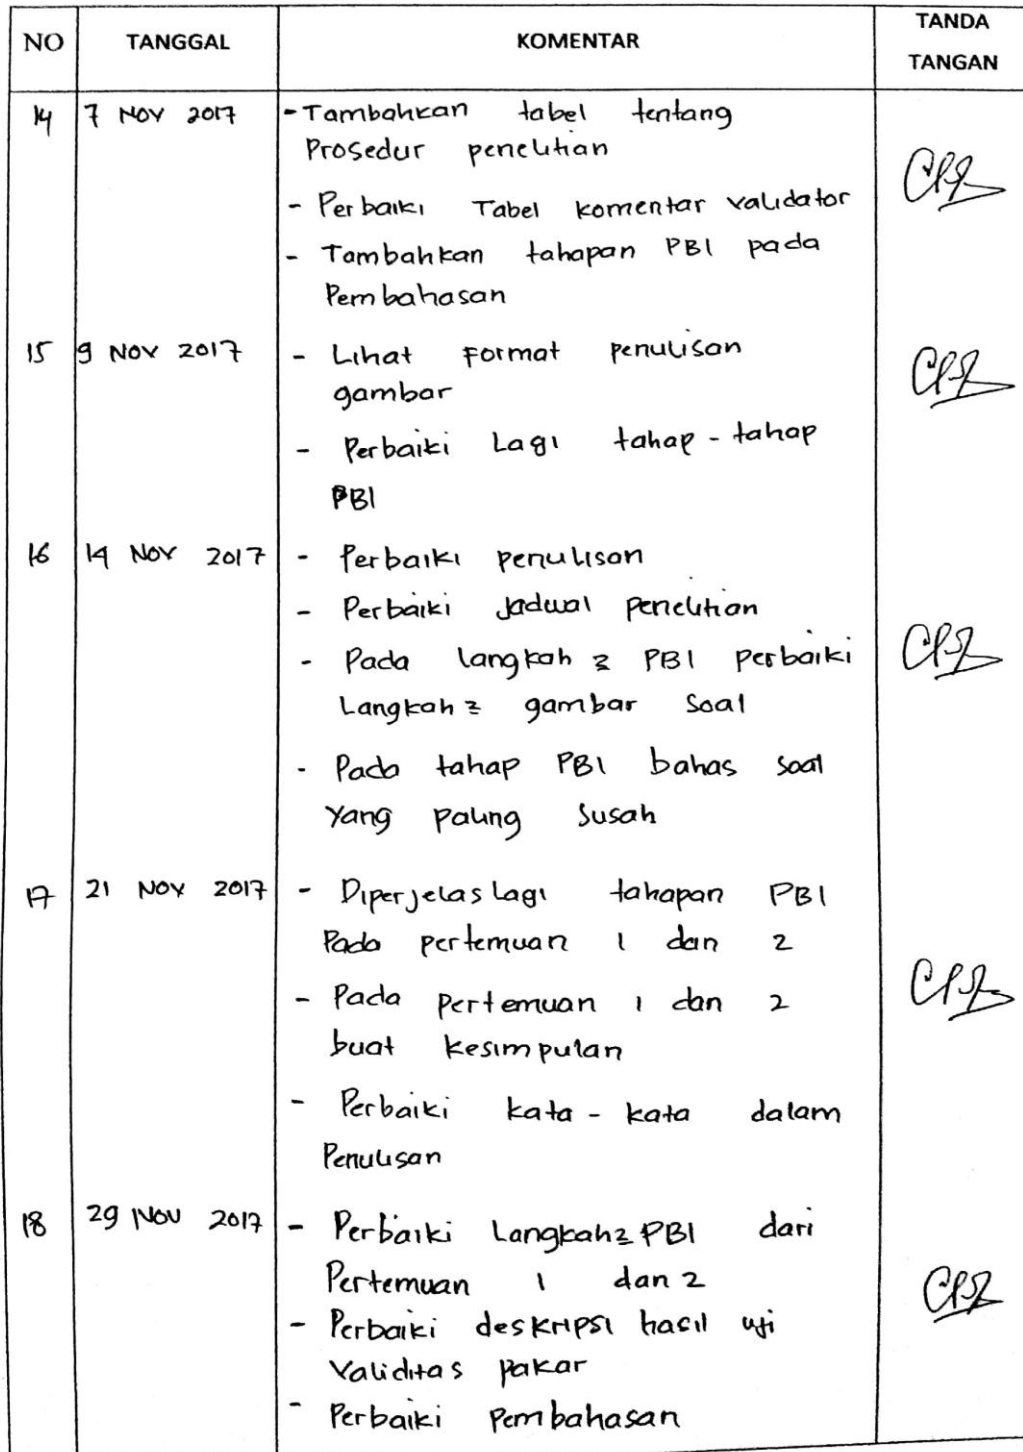 NO TANGGAL KOMENTAR TANDA TANGAN
14 7 NOV 2017 - Tambahkan tabel tentang
Prosedur penelitian
- Perbaiki Tabel komentar validator
- Tambahkan tahapan PBI pada
Pembahasan
15 9 NOV 2017 - Lihat Format penulisan
gambar
- Perbaiki Lagi tahap - tahap
PBI
16 14 NOV 2017 - Perbaiki penulisan
- Perbaiki Jadwal penelitian
- Pada langkah 2 PBI perbaiki
Langkah 2 gambar Soal
- Pada tahap PBI bahas soal
Yang paling Susah
17 21 NOV 2017 - Diperjelas lagi tahapan PBI
Pada pertemuan 1 dan 2
- Pada pertemuan 1 dan 2
buat kesimpulan
- Perbaiki kata - kata dalam
Penulisan
18 29 NOV 2017 - Perbaiki Langkah2 PBI dari
Pertemuan 1 dan 2
- Perbaiki deskripsi hasil uji
Validitas pakar
- Perbaiki Pembahasan